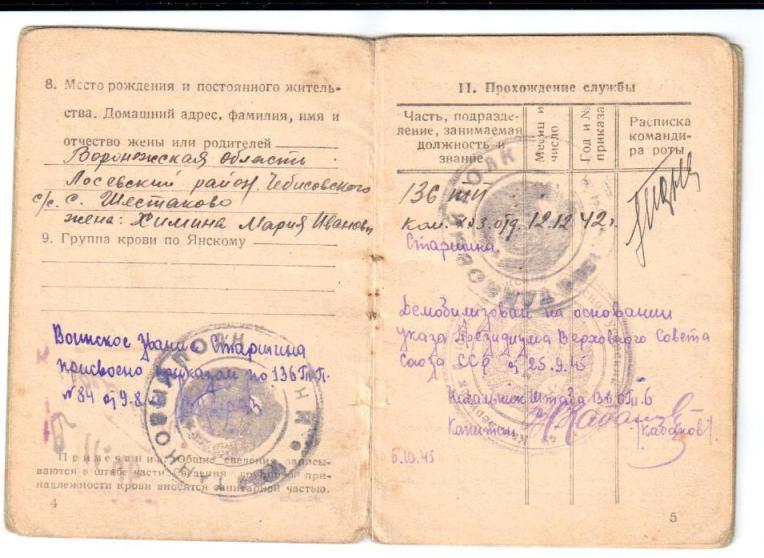 8. Место рождения и постоянного житель-
ства. Домашний адрес, фамилия, имя и
отчество жены или родителей
Воронежская область
Лосевский район, Чебисовского
с/с. с. Шестаково
жена: Химина Мария Иванов
9. Группа крови по Янскому
Воинское звание Старшина
присвоено приказом по 136 т.п.
№ 84 от 9.8.
Примечание. Общие сведения записы-
ваются в штабе части. Сведения о групповой при-
надлежности крови вносятся санитарной частью.
4
11. Прохождение службы
Часть, подразде-
ление, занимаемая
должность и
звание
Месяц и
число
Год и №
приказа
Расписка
команди-
ра роты
136 тп
Ком. отд. 12.12 42г.
Старшина
Демобилизован на основании
указа Президиума Верховного Совета
Союза ССР от 25.9.45
Начальник Штаба
Капитан (Кабаков)
6.10.45
5
ТАНКОВЫЙ ПОЛК
ТАНКОВЫЙ ПОЛК